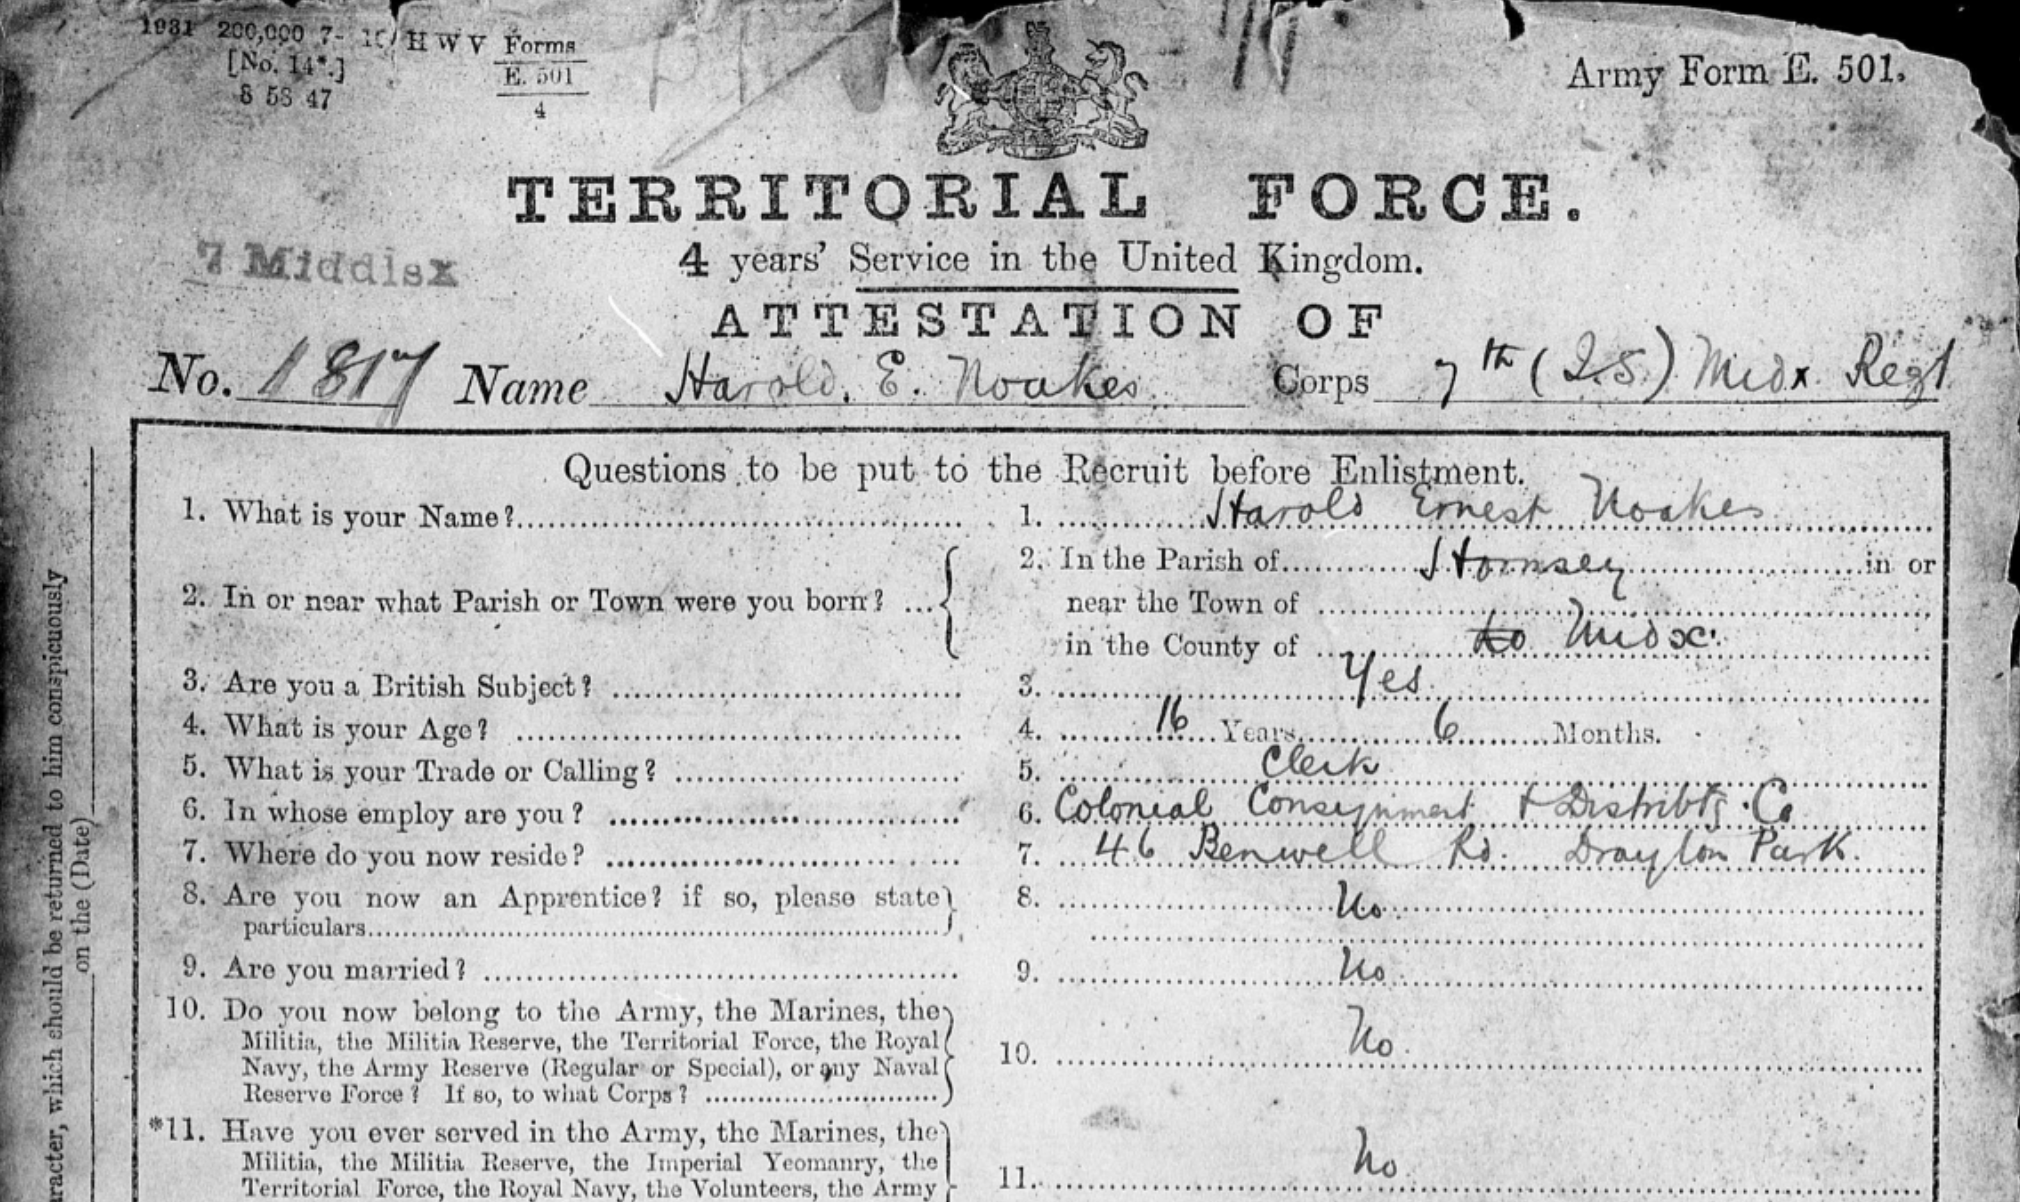 1931 200,000 7- 10/ H W V Forms
[No. 14*.] E. 501
8 53 47 4
Army Form E. 501.
TERRITORIAL FORCE.
7 Middlsx
4 years' Service in the United Kingdom.
ATTESTATION OF
No. 1817 Name Harold. E. Noakes Corps 7th (I.S.) Midx. Regt
Questions to be put to the Recruit before Enlistment.
1. What is your Name? 1. Harold Ernest Noakes
2. In or near what Parish or Town were you born? 2. In the Parish of Hornsey in or
near the Town of
in the County of Lo Midx.
3. Are you a British Subject? 3. Yes
4. What is your Age? 4. 16 Years 6 Months.
5. What is your Trade or Calling? 5. Clerk
6. In whose employ are you? 6. Colonial Consignment & Distribtg. Co
7. Where do you now reside? 7. 46 Benwell Rd. Drayton Park.
8. Are you now an Apprentice? if so, please state 8. No.
particulars
9. Are you married? 9. No.
10. Do you now belong to the Army, the Marines, the
Militia, the Militia Reserve, the Territorial Force, the Royal
Navy, the Army Reserve (Regular or Special), or any Naval
Reserve Force? If so, to what Corps? 10. No.
*11. Have you ever served in the Army, the Marines, the
Militia, the Militia Reserve, the Imperial Yeomanry, the
Territorial Force, the Royal Navy, the Volunteers, the Army 11. No.
aracter, which should be returned to him conspicuously
on the (Date)